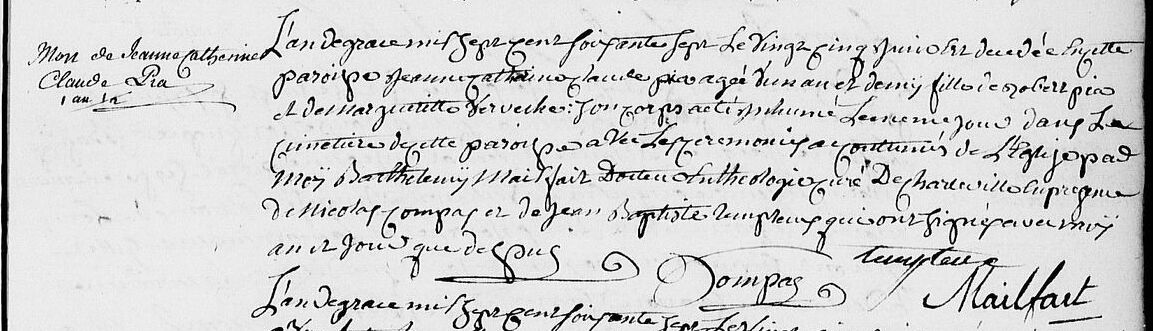 Mort de Jeanne Catherine
Claude Pia
1 an ½
L'an de grace mil sept cent soixante sept Le vingt cinq juin est decedée en cette
paroisse jeanne Catherine claude pia agé d'un an et demy fille de robert pia
et de margueritte Verveche: son corps a eté inhumé Le meme jour dans Le
cimetiere de cette paroisse avec Les ceremonies accoutumés de L'Eglise par
Moÿ Barthelemÿ Mailfait Docteur En theologie curé De charleville En presence
de Nicolas Compas et de jean Baptiste qui ont signés avec moÿ
an et jour que dessus
Compas
Mailfait
L'an de grace mil sept cent soixante sept Le vingt